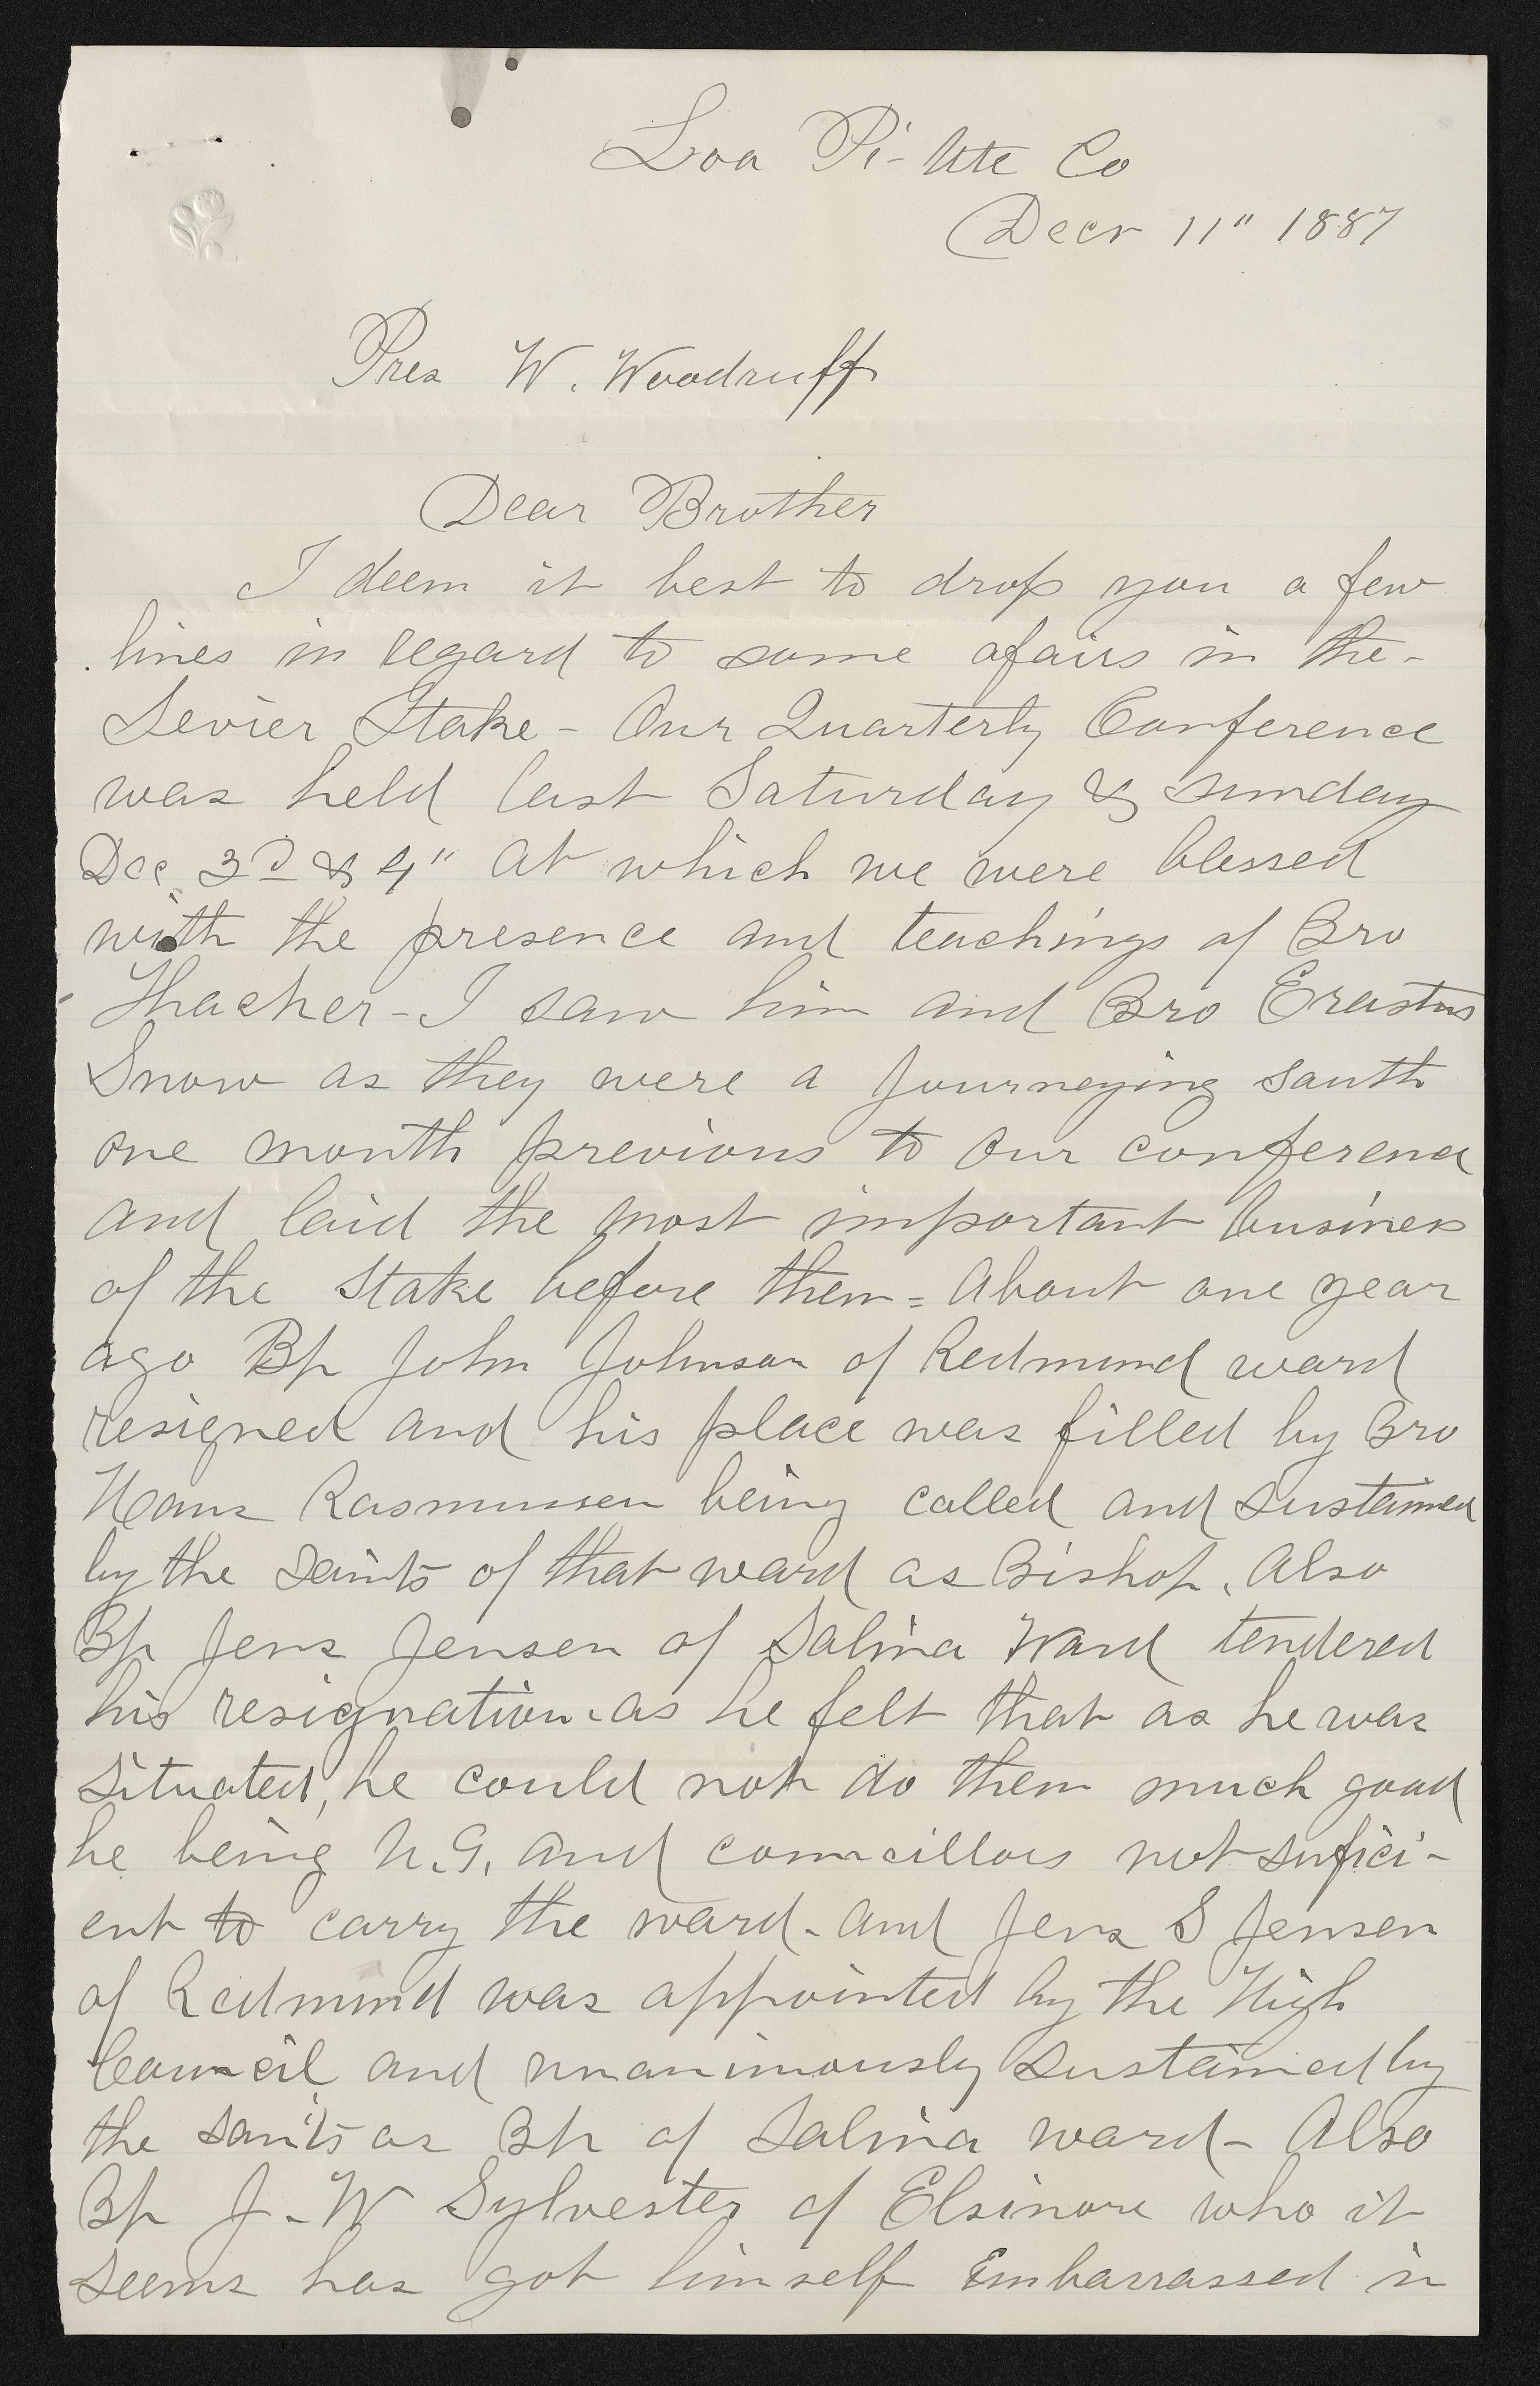 Loa Pi-Ute Co
Decr 11" 1887
Pres W. Woodruff
Dear Brother
I deem it best to drop you a few
lines in regard to some afairs in the-
Sevier Stake - Our Quarterly Conference
was held last Saturday & Sunday
Dec. 3d & 4" at which we were blessed
with the presence and teachings of Bro
Thacher - I saw him and Bro Erastus
Snow as they were a Journeying South
one month previous to our conference
and laid the most important business
of the Stake before them = About one year
ago Bp John Johnson of Redmund ward
resigned and his place was filled by Bro
Hans Rasmussen being called and sustained
by the Saints of that ward as Bishop. Also
Bp Jens Jensen of Salina Ward tendered
his resignation. as he felt that as he was
situated, he could not do them much good
he being U.G. and councillors not sufici-
ent to carry the ward. and Jens S Jensen
of Redmund was appointed by the High
Council and unanimously sustained by
the saints as Bp of Salina ward - Also
Bp J. W Sylvester of Elsinore who it
seems has got himself Embarrassed in